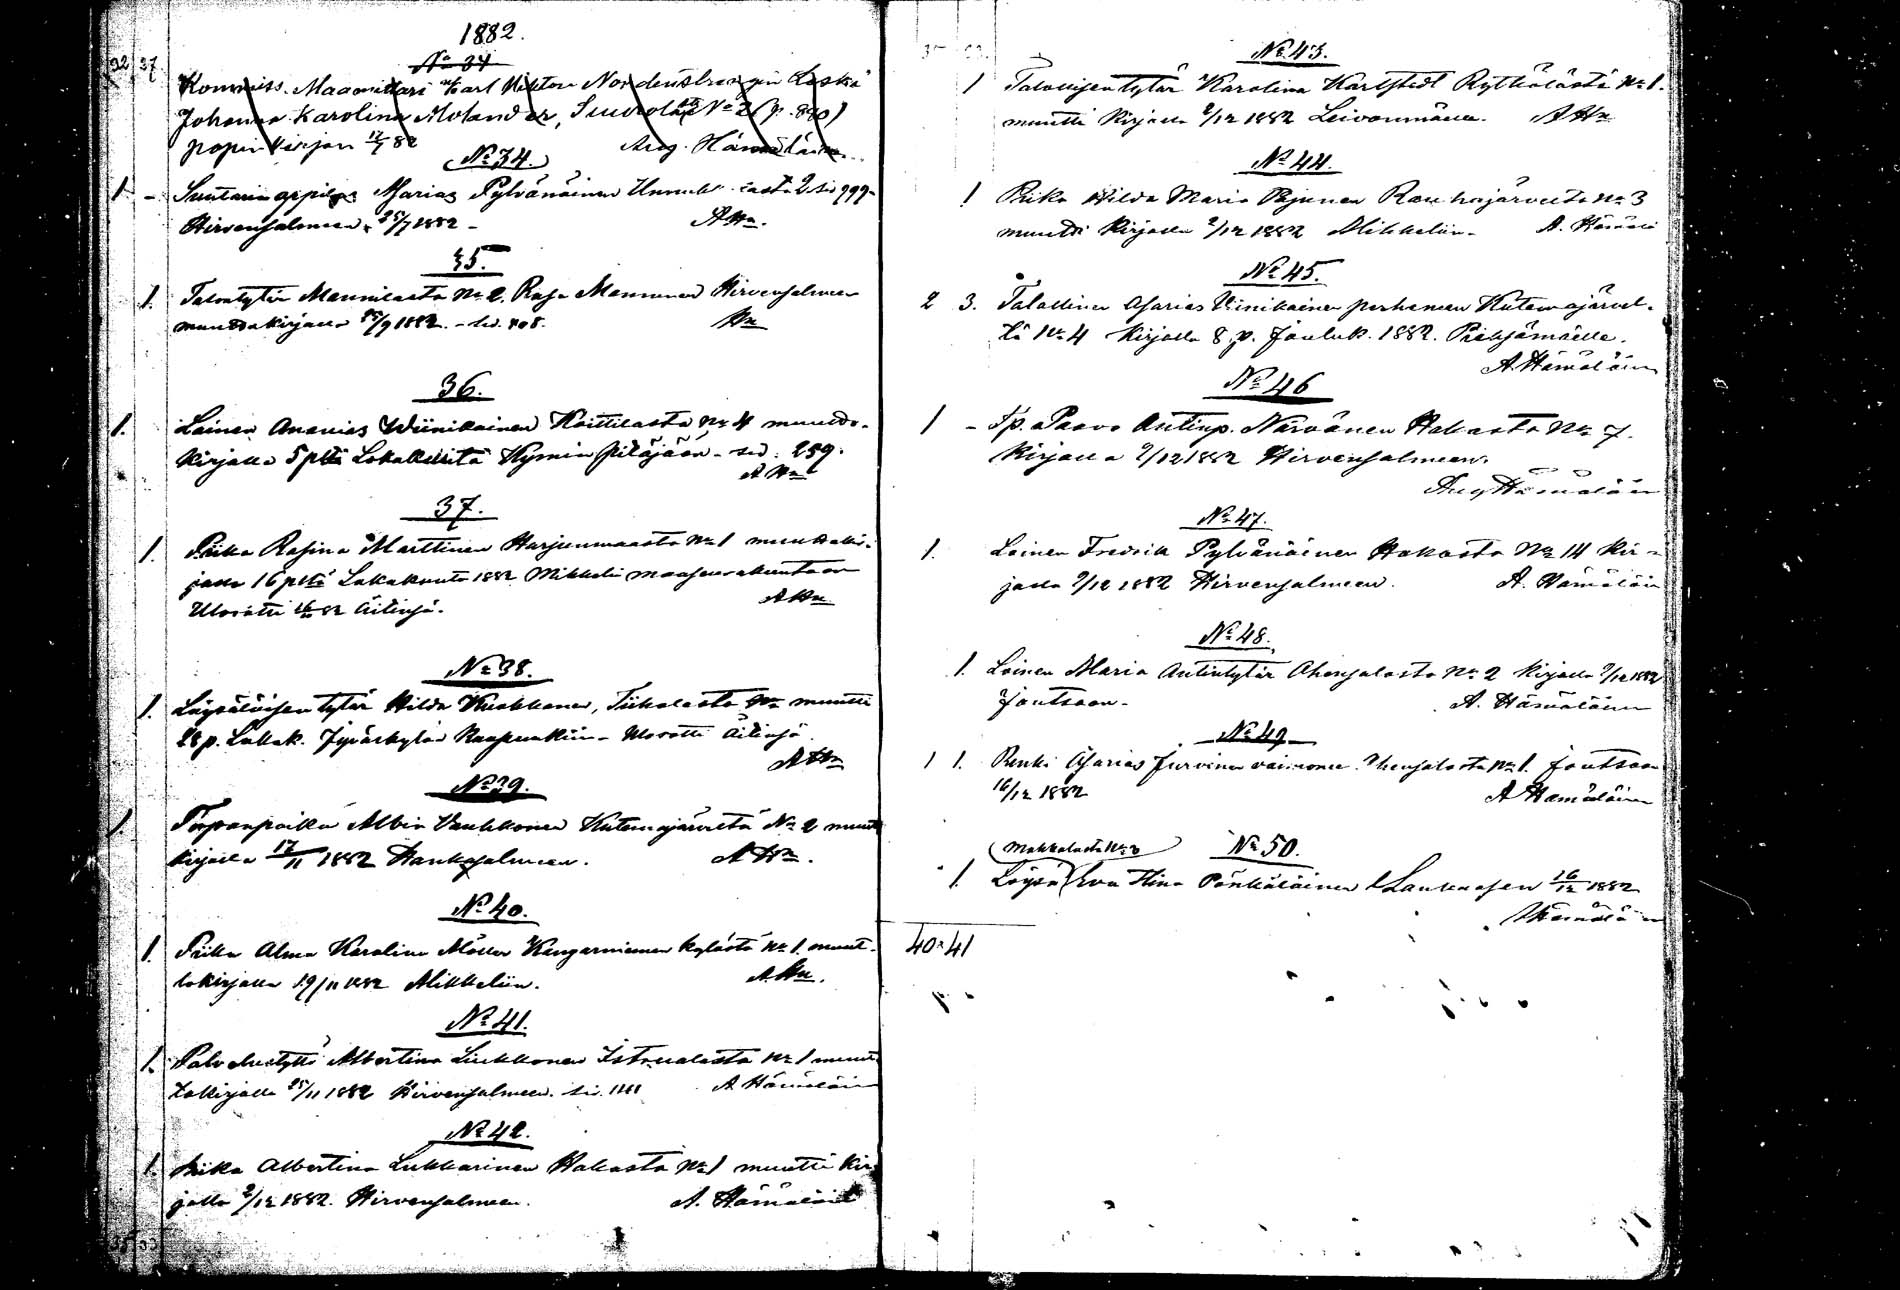 1882.
32 37
No 34
Kommiss. Maamittari Karl Viktor Nordenstrengin Leski
Johanna Karolina Molander, Suurola No 2 (p. 890)
papinkirjan 12/7 82 Aug. Hämäläinen
(No 34.)
1 - Suutarin oppilas Marias Pylvänäinen 2 siv 999
Hirvensalmeen 25/7 1882 - AHn.
35.
1. Talontytär Mannilasta No 2. Manninen Hirvensalmeen
muuttokirjalla 25/9 1882. - siv. 408. Hn
36.
1. Loinen Ananias Wiinikainen Koittilasta No 4 muutto-
kirjalla 5 pltä Lokakuuta Kymin pitäjään - siv. 259.
A Hn
37.
1. Piika Rosina Marttinen Harjunmaasta No 1 muuttokir-
jalla 16 pltä Lokakuuta 1882 Mikkelin maaseurakuntaan
Ulosotti 82 äitinsä. AHn
No 38.
1. Löysäläisen tytär Hilda Kuukkanen, Tiihalasta No muutti
28 p. Lokak. Jyväskylän Kaupunkiin - Ulosotti äitinsä.
AHn
No 39.
1 Torpanpoika Albin Vauhkonen Kutemajärveltä No 2 muutti
kirjalla 17/11 1882 Hankasalmeen. A Hn.
No 40.
1. Piika Alma Karolina Möller Kangasniemen kylästä No 1. muut-
tokirjalla 19/11 1882 Mikkeliin. A.Hn.
No 41.
1. Palvelustyttö Albertina Liukkonen Istrualasta No 1 muut-
tokirjalla 25/11 1882 Hirvensalmeen. siv. A Hämäläin
No 42.
1. Piika Albertina Lukkarinen Hakasta No 1 muutti kir-
jalla 2/12 1882. Hirvensalmeen. A. Hämäläin
No 43.
1 Talollisen tytär Karolina Karlstedt Rytkölästä No 1.
muutti Kirjalla 2/12 1882 Leivonmäelle. A Hn
No 44.
1 Piika Hilda Maria Pajunen Rauhajärveltä No 3
muutti Kirjalla 2/12 1882 Mikkeliin. A. Hämälä
No 45.
2 3. Talollinen Asarias Viinikainen perheineen Kutemajärvel-
tä No 4 Kirjalla 8 p. Jouluk. 1882. Pieksämäelle.
A. Hämäläinen
No 46
1 - Tp. a Paavo Antinp. Närvänen Hakasta No 7.
Kirjalla 9/12 1882 Hirvensalmeen.
Aug Hämäläin
No 47.
1. Loinen Fredrik Pylvänäinen Hakasta No 14 kir-
jalla 9/12 1882 Hirvensalmeen. A. Hämäläin
No 48.
1. Loinen Maria Antintytär Ohensalosta No 2 Kirjalla 9/12 1882
Joutsaan. A. Hämäläinen
No 49
1 1. Renki Asarias Jurvinen vaimonee. Ohensalosta No 1. Joutsaan
16/12 1882 A Hämäläinen
(Makkolasta No 3 No 50.
1. Löysä Eva Stina Pänkäläinen Laukaasen 16/12 1882
Hämäläinen
40 41